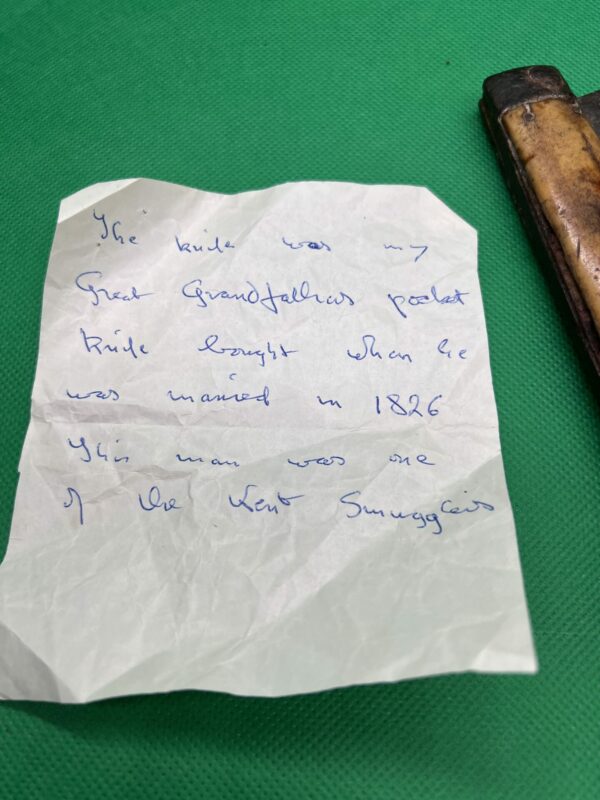 The knife was my
Great Grandfathers pocket
knife bought when he
was married in 1826
This man was one
of the Kent Smugglers